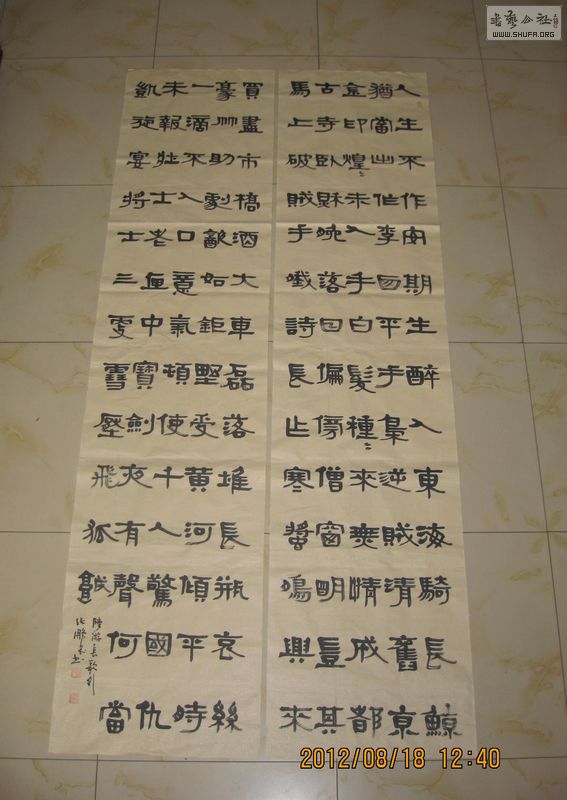 人生不作安期生醉入東海騎長鯨
猶當出作李西平手梟逆賊清舊京
金印煌〻未入手白髮種〻來無情成都
古寺臥秌晚落日偏傍僧窗明豈其
馬上破賊手哦詩長作寒螿鳴興來
買盡市橋酒大車磊落堆長瓶哀絲
豪竹助劇飲如鉅野受黃河傾平時
一滴不入口意氣頓使千人驚國仇
未報壯士老匣中寶劍夜有聲何當
凱旋宴將士三更雪壓飛狐城
陸游長歌行
書藝公社
WWW.SHUFA.ORG
2012/08/18 12:40